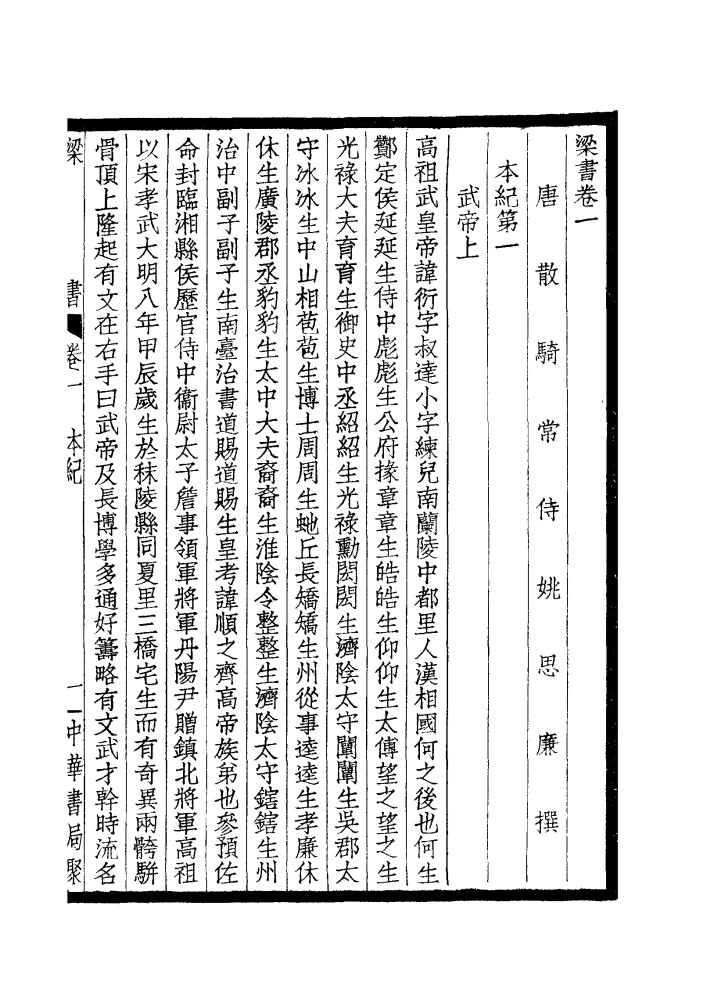 梁書卷一
唐散騎常侍姚思廉撰
本紀第一
武帝上
高祖武皇帝諱衍字叔達小字練兒南蘭陵中都里人漢相國何之後也何生
酇定侯延延生侍中彪彪生公府掾章章生皓皓生仰仰生太傅望之望之生
光祿大夫育育生御史中丞紹紹生光祿勳閎閎生濟陰太守闡闡生吳郡太
守冰冰生中山相苞苞生博士周周生虵丘長矯矯生州從事逵逵生孝廉休
休生廣陵郡丞豹豹生太中大夫裔裔生淮陰令整整生濟陰太守鎋鎋生州
治中副子副子生南臺治書道賜道賜生皇考諱順之齊高帝族弟也參預佐
命封臨湘縣侯歷官侍中衞尉太子詹事領軍將軍丹陽尹贈鎮北將軍高祖
以宋孝武大明八年甲辰歲生於秣陵縣同夏里三橋宅生而有奇異兩骻駢
骨頂上隆起有文在右手曰武帝及長博學多通好籌略有文武才幹時流名
梁書 卷一 本紀 一 中華書局聚